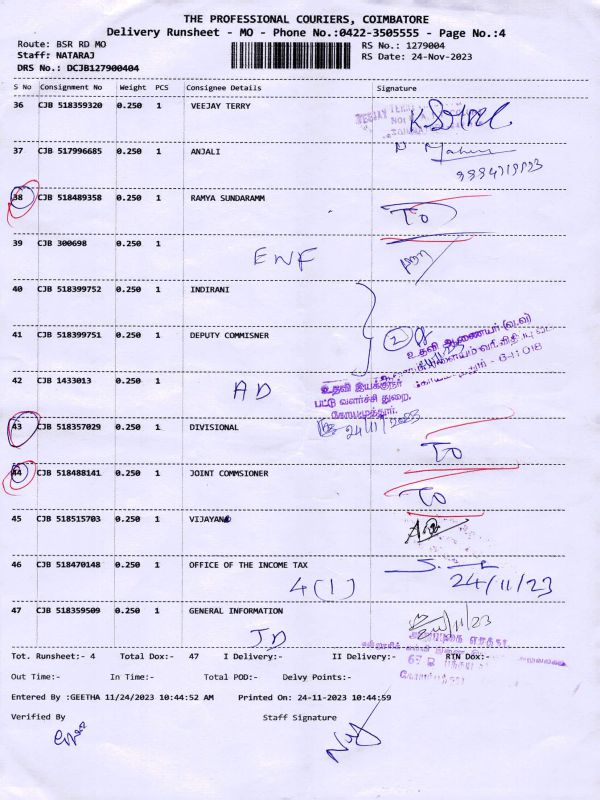 THE PROFESSIONAL COURIERS, COIMBATORE
Delivery Runsheet - MO - Phone No.:0422-3505555 - Page No.:4
Route: BSR RD MO RS No.: 1279004
Staff: NATARAJ RS Date: 24-Nov-2023
DRS No.: DCJB127900404
S No Consignment No Weight PCS Consignee Details Signature
36 CJB 518359320 0.250 1 VEEJAY TERRY
37 CJB 517996685 0.250 1 ANJALI
38 CJB 518489358 0.250 1 RAMYA SUNDARAMM TO
39 CJB 300698 0.250 1
ENF
40 CJB 518399752 0.250 1 INDIRANI
41 CJB 518399751 0.250 1 DEPUTY COMMISNER 2
42 CJB 1433013 0.250 1 AD
உதவி இயக்குநர்
பட்டு வளர்ச்சி துறை,
கோயமுத்தூர்.
24/11/2023
43 CJB 518357029 0.250 1 DIVISIONAL TO
44 CJB 518488141 0.250 1 JOINT COMMSIONER TO
45 CJB 518515703 0.250 1 VIJAYAN
46 CJB 518470148 0.250 1 OFFICE OF THE INCOME TAX
4(1) 24/11/23
47 CJB 518359509 0.250 1 GENERAL INFORMATION
JD
Tot. Runsheet:- 4 Total Dox:- 47 I Delivery:- II Delivery:- RTN Dox:-
Out Time:- In Time:- Total POD:- Delvy Points:-
Entered By :GEETHA 11/24/2023 10:44:52 AM Printed On: 24-11-2023 10:44:59
Verified By Staff Signature